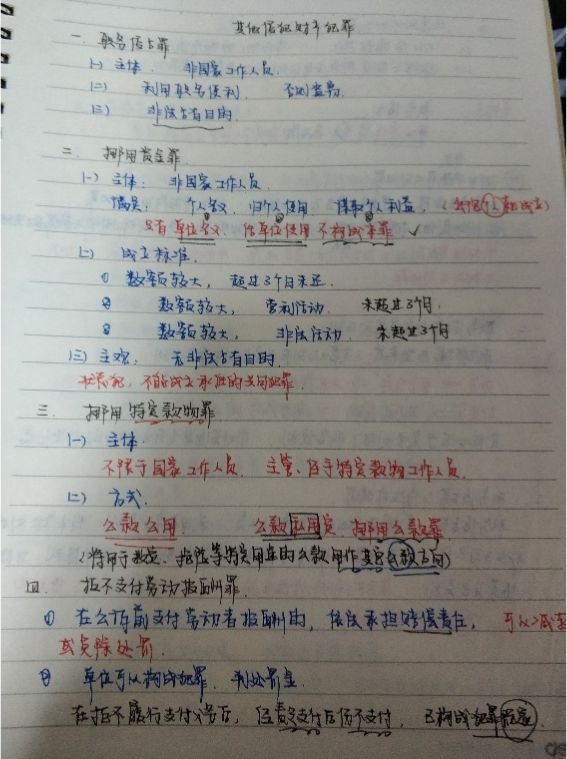 其他侵犯财产犯罪
一、职务侵占罪
(一) 主体 非国家工作人员.
(二) 利用职务便利. 否则盗窃.
(三) 非法占有目的.
二、挪用资金罪
(一) 主体: 非国家工作人员
个人名义、归个人使用、谋取个人利益.
只有单位名义、供单位使用不构成本罪 ✓
(二) 成立标准.
① 数额较大, 超过3个月未还.
② 数额较大, 营利活动. 未超过3个月.
③ 数额较大, 非法活动. 未超过3个月
(三) 主观: 无非法占有目的.
不能成立承继的共同犯罪.
三. 挪用特定款物罪
(一) 主体.
不限于国家工作人员. 主管、经手特定款物工作人员.
(二) 方式.
公款公用. 公款私用定挪用公款罪
(将用于救灾、抢险等特定用途的公款用作其它公款方向)
四. 拒不支付劳动报酬罪.
① 在公诉前支付劳动者报酬的, 依法承担赔偿责任, 可以减轻
或免除处罚.
② 单位可以构成犯罪. 判处罚金.
在拒不履行支付义务后, 经责令支付后仍不支付. 已构成犯罪既遂.